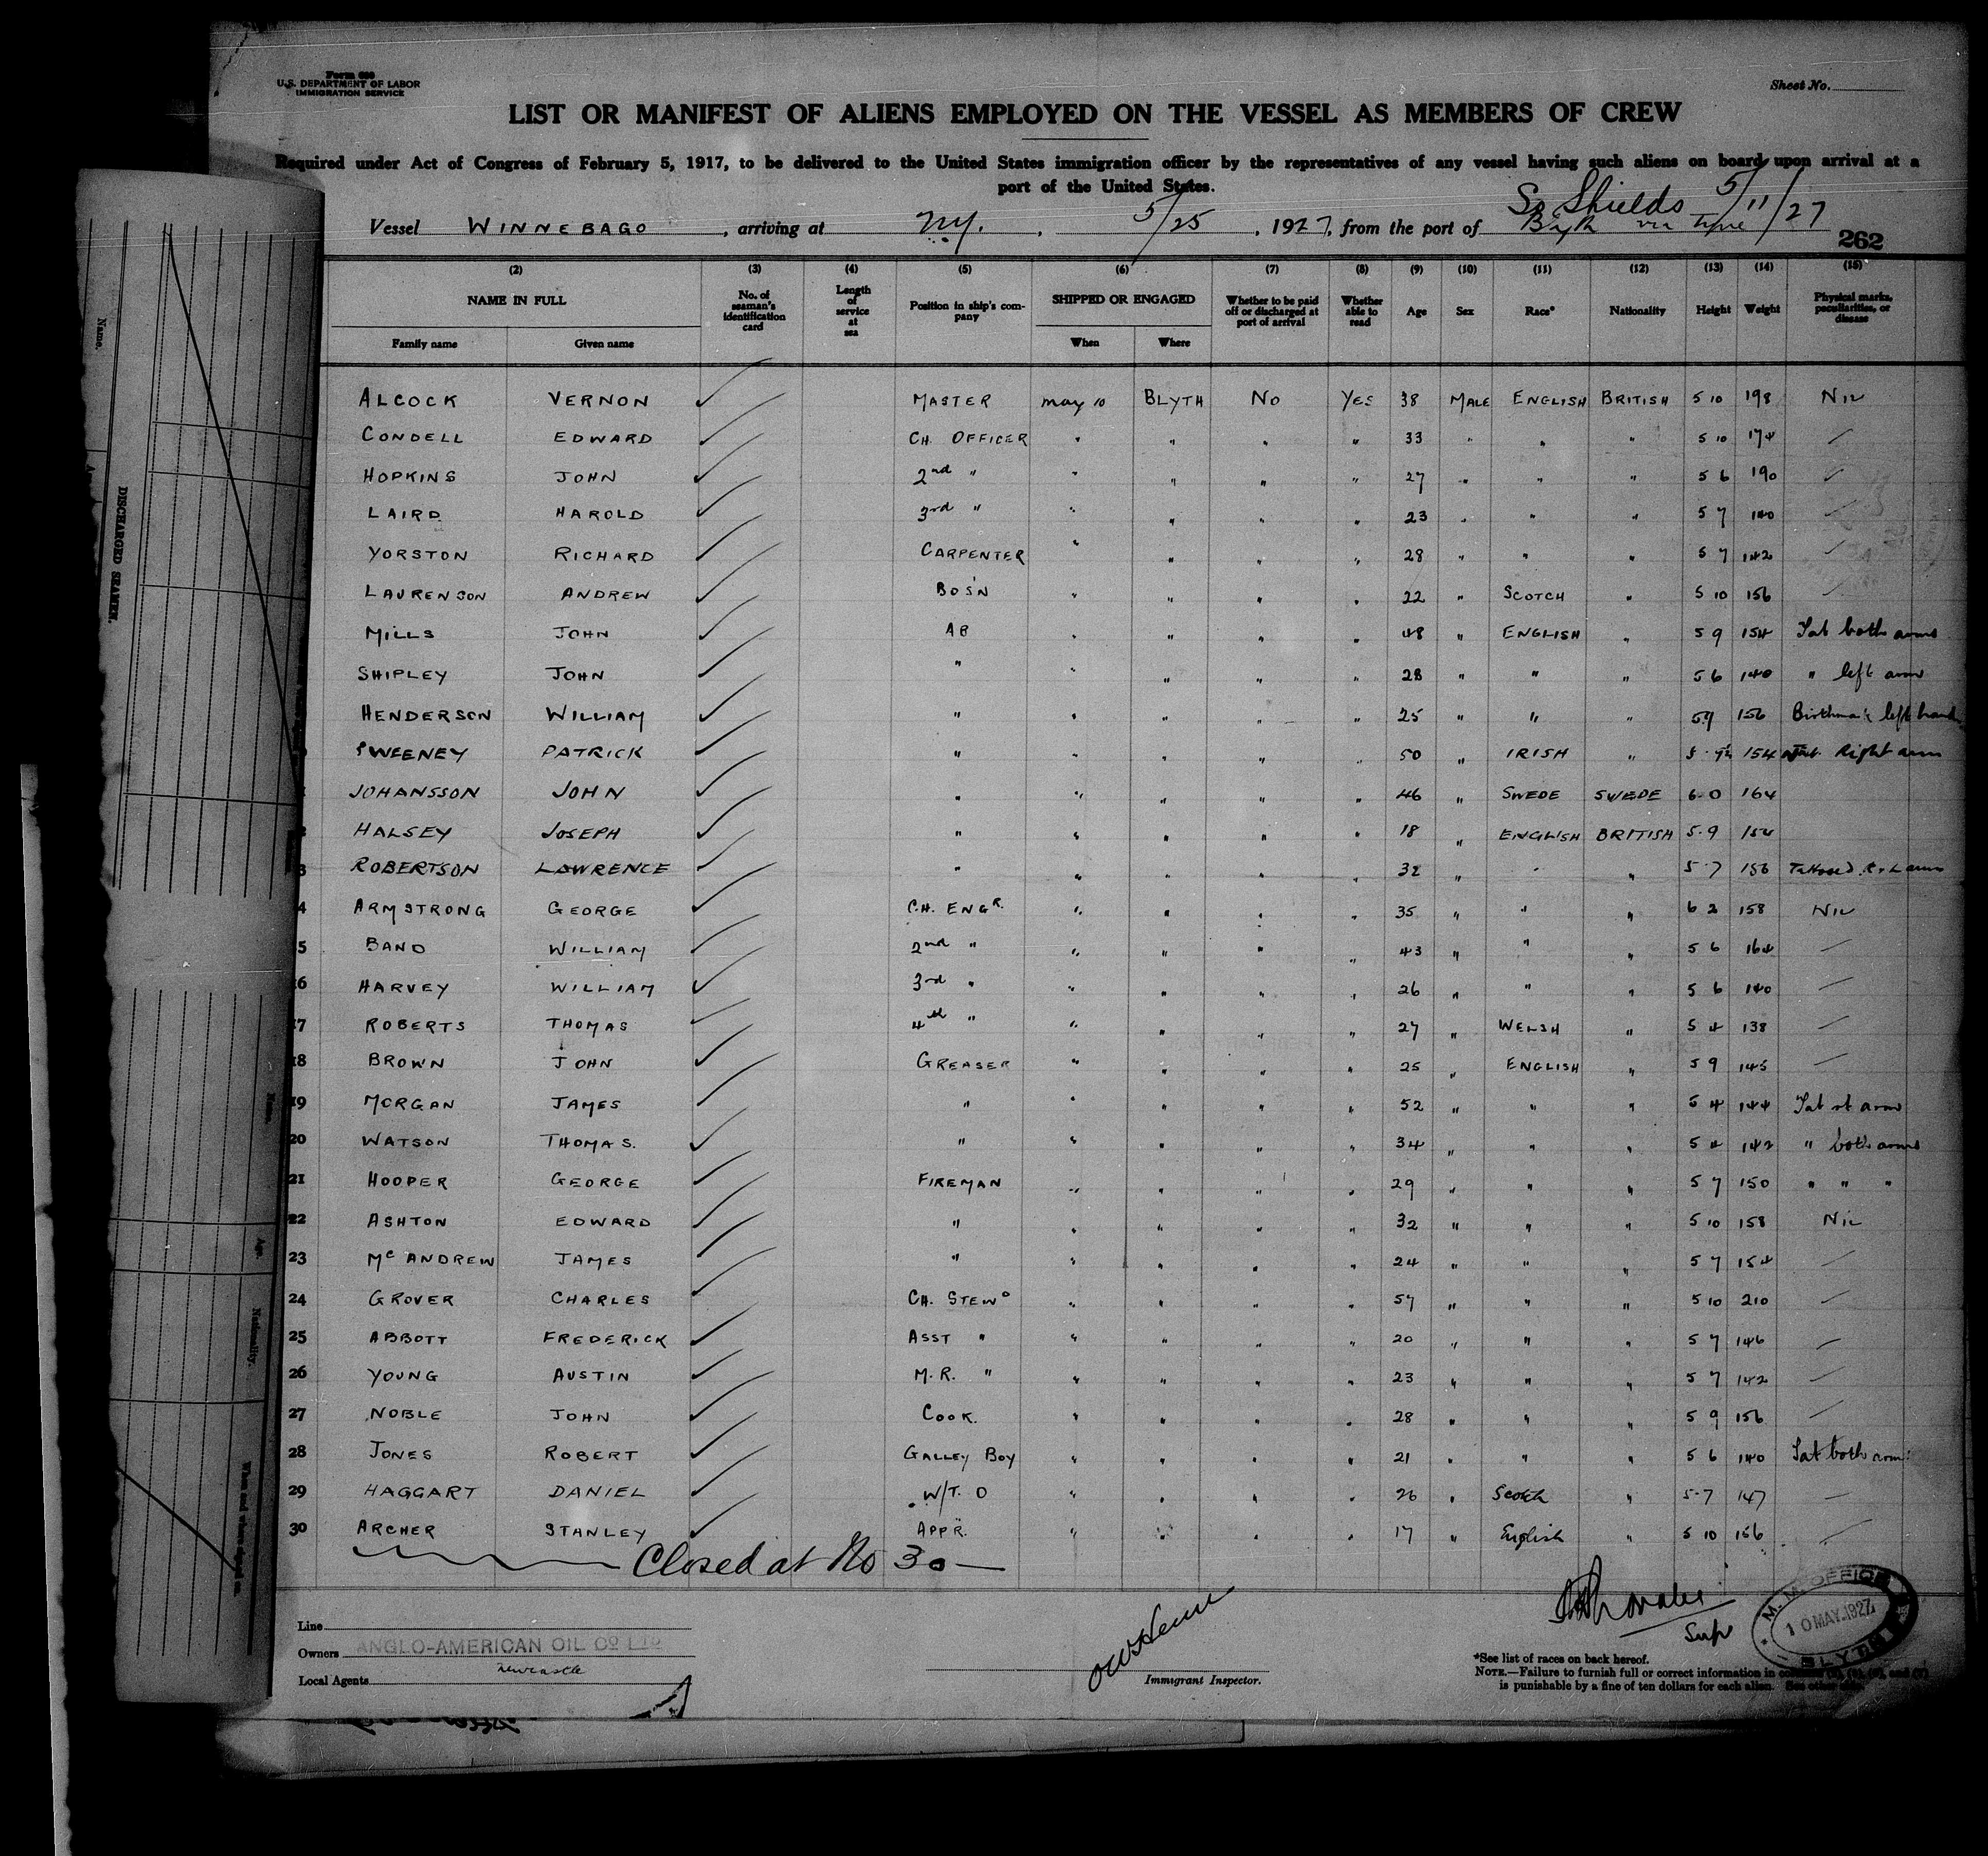 Form 680
U.S. DEPARTMENT OF LABOR
IMMIGRATION SERVICE
Sheet No.
LIST OR MANIFEST OF ALIENS EMPLOYED ON THE VESSEL AS MEMBERS OF CREW
Required under Act of Congress of February 5, 1917, to be delivered to the United States immigration officer by the representatives of any vessel having such aliens on board upon arrival at a
port of the United States.
So Shields 5/11/27
Vessel WINNEBAGO, arriving at N.Y., 5/25, 1927, from the port of Blyth via Tyne
262
(2) (3) (4) (5) (6) (7) (8) (9) (10) (11) (12) (13) (14) (15)
NAME IN FULL No. of seaman's identification card Length of service at sea Position in ship's company SHIPPED OR ENGAGED Whether to be paid off or discharged at port of arrival Whether able to read Age Sex Race* Nationality Height Weight Physical marks, peculiarities, or disease
Family name Given name When Where
ALCOCK VERNON MASTER May 10 BLYTH NO YES 38 MALE ENGLISH BRITISH 5 10 198 NIL
CONDELL EDWARD CH. OFFICER " " " " 33 " " " 5 10 174
HOPKINS JOHN 2nd " " " " " 27 " " " 5 6 190
LAIRD HAROLD 3rd " " " " " 23 " " " 5 7 140
YORSTON RICHARD CARPENTER " " " " 28 " " " 5 7 142
LAURENSON ANDREW BOS'N " " " " 22 " SCOTCH " 5 10 156
MILLS JOHN AB " " " " 48 " ENGLISH " 5 9 154 Tat both arms
SHIPLEY JOHN " " " " " 28 " " " 5 6 140 " left arm
HENDERSON WILLIAM " " " " " 25 " " " 5 9 156 Birthmark left hand
SWEENEY PATRICK " " " " " 50 " IRISH " 5 9½ 154 Tat. Right arm
JOHANSSON JOHN " " " " " 46 " SWEDE SWEDE 6-0 164
HALSEY JOSEPH " " " " " 18 " ENGLISH BRITISH 5-9 154
3 ROBERTSON LAWRENCE " " " " " 32 " " " 5-7 156 Tattooed R & L arms
4 ARMSTRONG GEORGE CH. ENGR. " " " " 35 " " " 6 2 158 NIL
5 BAND WILLIAM 2nd " " " " " 43 " " " 5 6 164
16 HARVEY WILLIAM 3rd " " " " " 26 " " " 5 6 140
17 ROBERTS THOMAS 4th " " " " " 27 " WELSH " 5 4 138
18 BROWN JOHN GREASER " " " " 25 " ENGLISH " 5 9 145
19 MORGAN JAMES " " " " " 52 " " " 5 4 144 Tat rt arm
20 WATSON THOMAS. " " " " " 34 " " " 5 4 142 " both arms
21 HOOPER GEORGE FIREMAN " " " " 29 " " " 5 7 150 " " "
22 ASHTON EDWARD " " " " " 32 " " " 5 10 158 NIL
23 McANDREW JAMES " " " " " 24 " " " 5 7 154
24 GROVER CHARLES CH. STEWD " " " " 57 " " " 5 10 210
25 ABBOTT FREDERICK ASST " " " " " 20 " " " 5 7 146
26 YOUNG AUSTIN M.R. " " " " " 23 " " " 5 7 142
27 NOBLE JOHN COOK. " " " " 28 " " " 5 9 156
28 JONES ROBERT GALLEY BOY " " " " 21 " " " 5 6 140 Tat both arms
29 HAGGART DANIEL W/T. O " " " " 26 " Scotch " 5-7 147
30 ARCHER STANLEY APPR. " " " " 17 " English " 5 10 156
Closed at No 30
Line
Owners ANGLO-AMERICAN OIL CO LTD
Newcastle
Local Agents
Immigrant Inspector.
Supt
M. M. OFFICE
10 MAY. 1927
BLYTH
*See list of races on back hereof.
NOTE.—Failure to furnish full or correct information in columns
is punishable by a fine of ten dollars for each alien. See other side.
Name.
DISCHARGED SEAMEN.
Name.
Age.
Nationality.
When and where signed on.